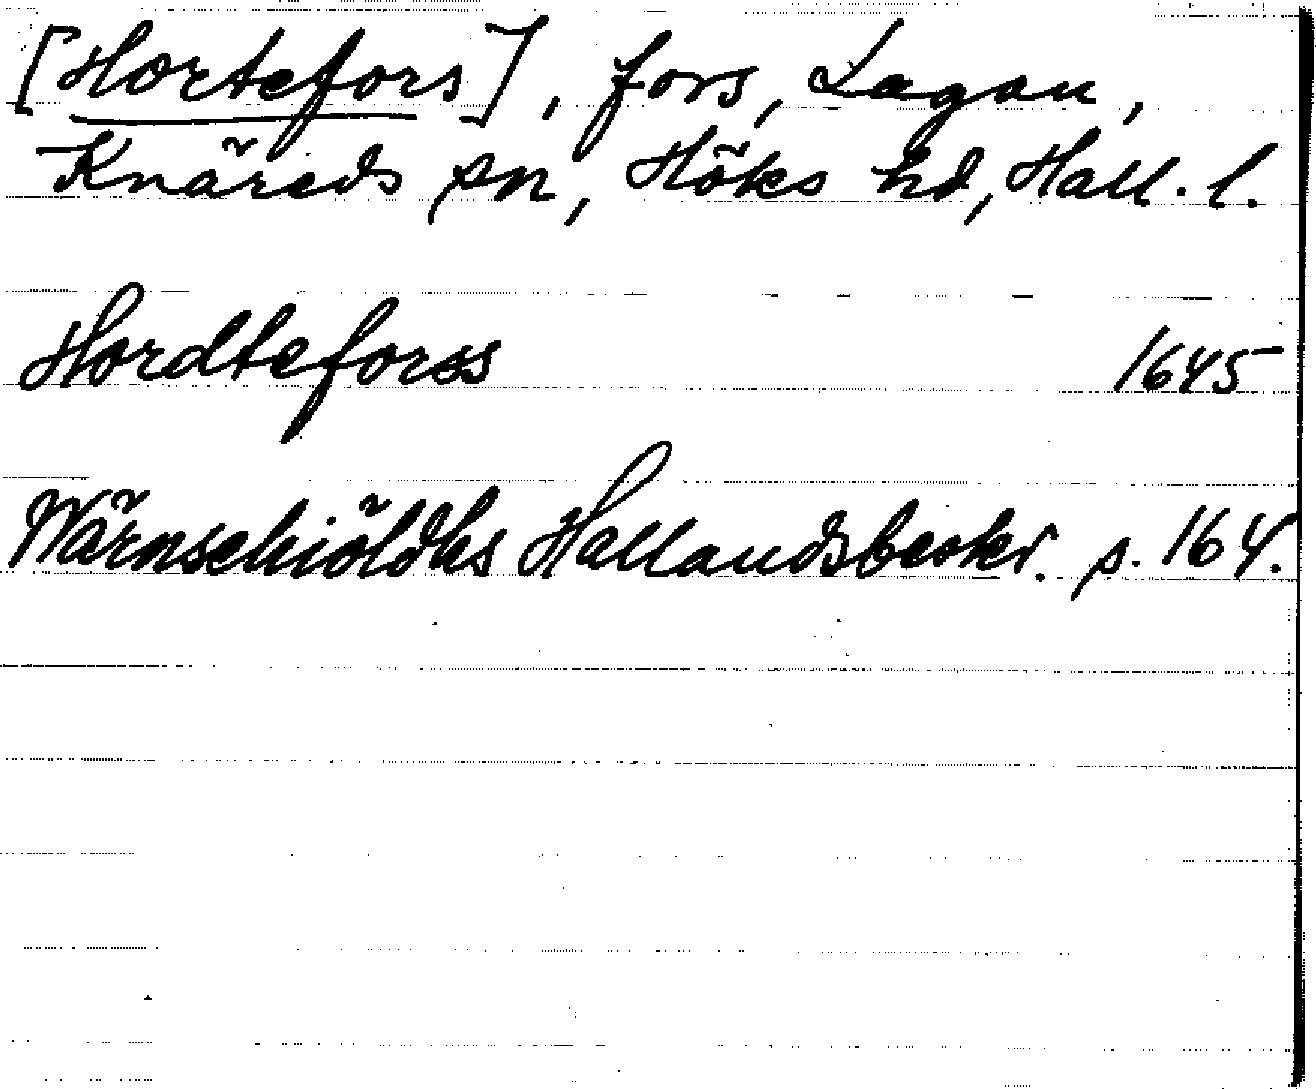 [Hortefors], fors, Lagan,
Knäreds sn, Höks hd, Hall. l.
Hordteforss 1645
Wärnschiöldhs Hallandsbeskr. s. 164.